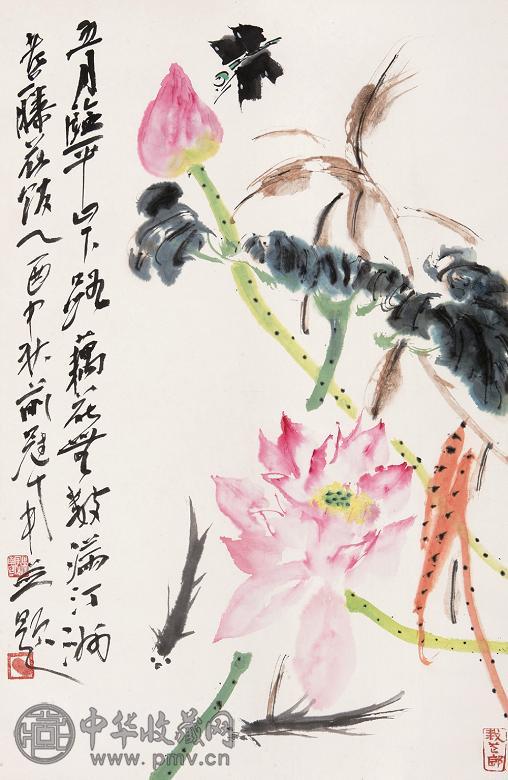 五月臨平山下路藕花無數滿汀洲
藤花館乙酉中秋前並題
中华收藏网
www.pmv.cn